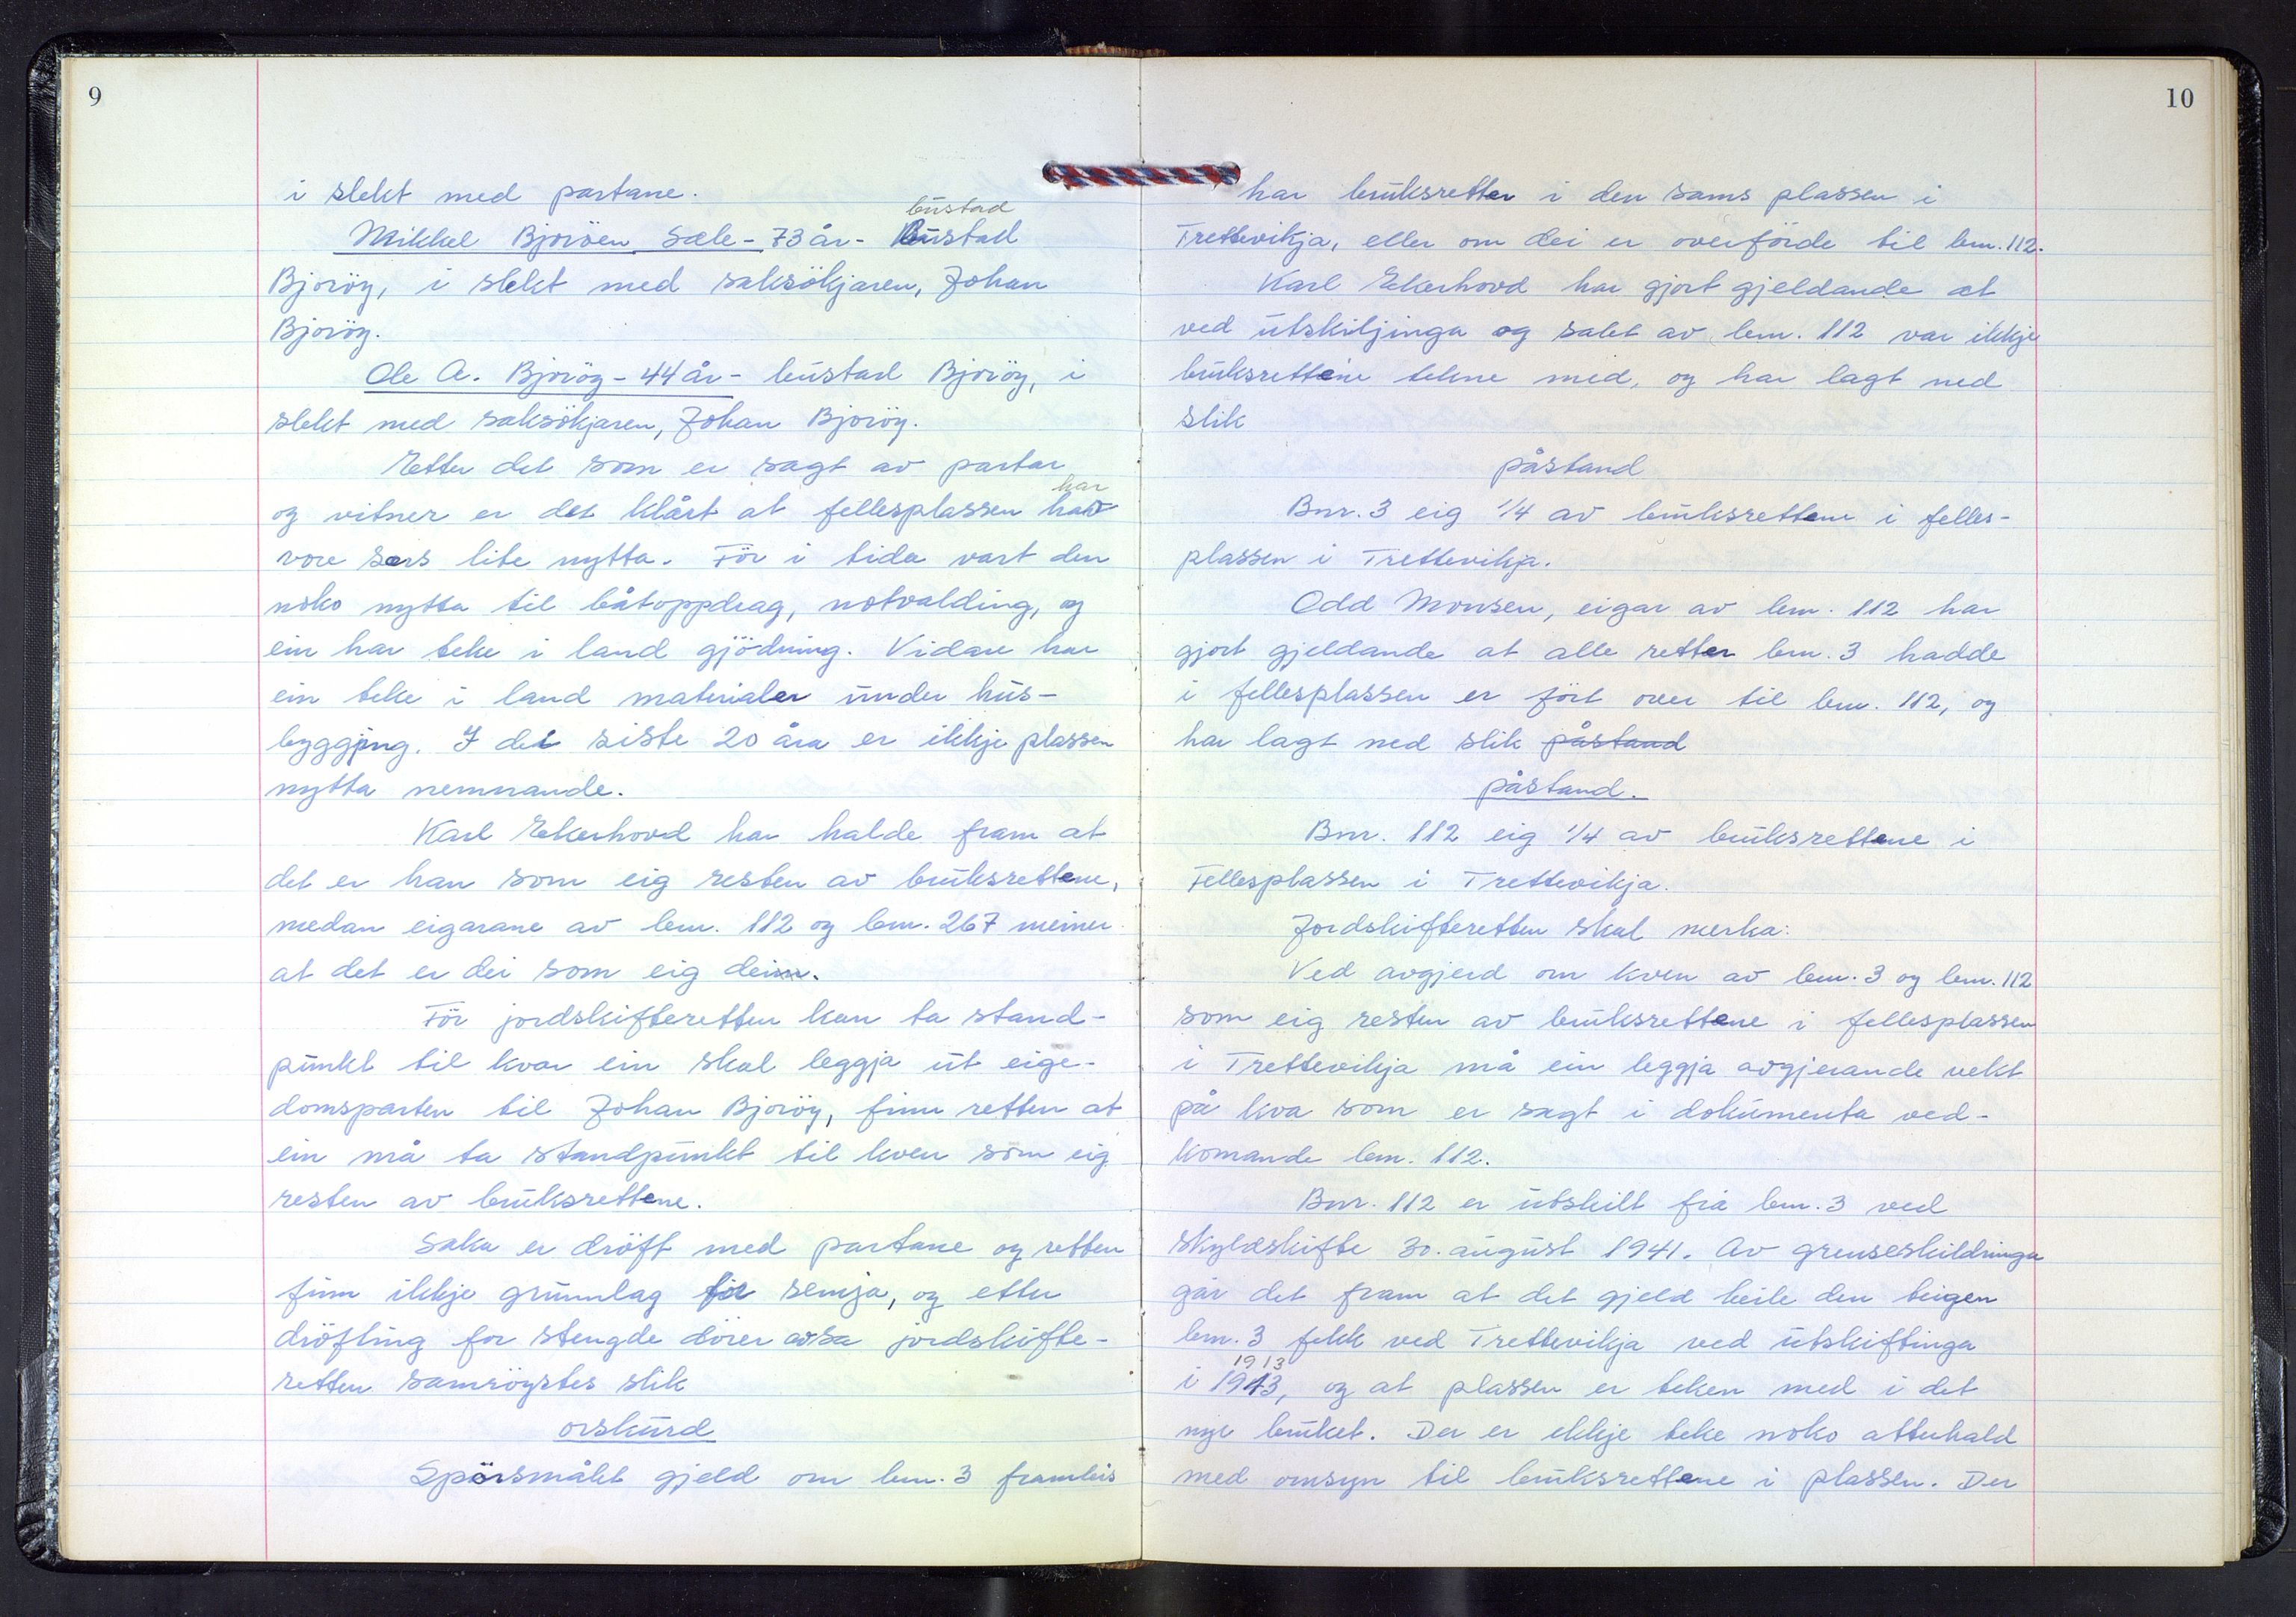 9
i slekt med partane.
bustad
Mikkel Bjorøen Sæle - 73 år - Bustad
Bjoröy, i slekt med saksökjaren, Johan
Bjoröy.
Ole A. Bjoröy - 44 år - bustad Bjoröy, i
slekt med saksökjaren, Johan Bjoröy.
Etter det som er sagt av partar
har
og vitner er det klårt at fellesplassen har
vore særs lite nytta. För i tida vart den
noko nytta til båtoppdrag, notvalding, og
ein har teke i land gjödning. Vidare har
ein teke i land materialer under hus-
byggjing. I dei siste 20 åra er ikkje plassen
nytta nemnande.
Karl Ekerhovd har halde fram at
det er han som eig resten av bruksrettene,
medan eigarane av bnr. 112 og bnr. 267 meiner
at det er dei som eig dei.
För jordskifteretten kan ta stand-
punkt til kvar ein skal leggja ut eige-
domsparten til Johan Bjoröy, finn retten at
ein må ta standpunkt til kven som eig
resten av bruksrettene.
Saka er dröft med partane og retten
finn ikkje grunnlag for semja, og etter
dröfting for stengde dörer avsa jordskifte-
retten samröystes slik
orskurd
Spörsmålet gjeld om bnr. 3 framleis
10
har bruksretter i den sams plassen i
Trettevikja, eller om dei er overförde til bnr. 112.
Karl Ekerhovd har gjort gjeldande at
ved utskiljinga og salet av bnr. 112 var ikkje
bruksrettene tekne med, og har lagt ned
slik
påstand
Bnr. 3 eig 1/4 av bruksrettene i felles-
plassen i Trettevikja.
Odd Monsen, eigar av bnr. 112 har
gjort gjeldande at alle retter bnr. 3 hadde
i fellesplassen er fört over til bnr. 112, og
har lagt ned slik påstand
påstand.
Bnr. 112 eig 1/4 av bruksrettene i
Fellesplassen i Trettevikja.
Jordskifteretten skal merka:
Ved avgjerd om kven av bnr. 3 og bnr. 112
som eig resten av bruksrettene i fellesplassen
i Trettevikja må ein leggja avgjerande vekt
på kva som er sagt i dokumenta ved-
komande bnr. 112.
Bnr. 112 er utskilt frå bnr. 3 ved
skyldskifte 30. august 1941. Av grenseskildringa
går det fram at det gjeld heile den teigen
bnr. 3 fekk ved Trettevikja ved utskiftinga
1913
i 1913, og at plassen er teken med i det
nye bruket. Der er ikkje teke noko atterhald
med omsyn til bruksrettene i plassen. Der